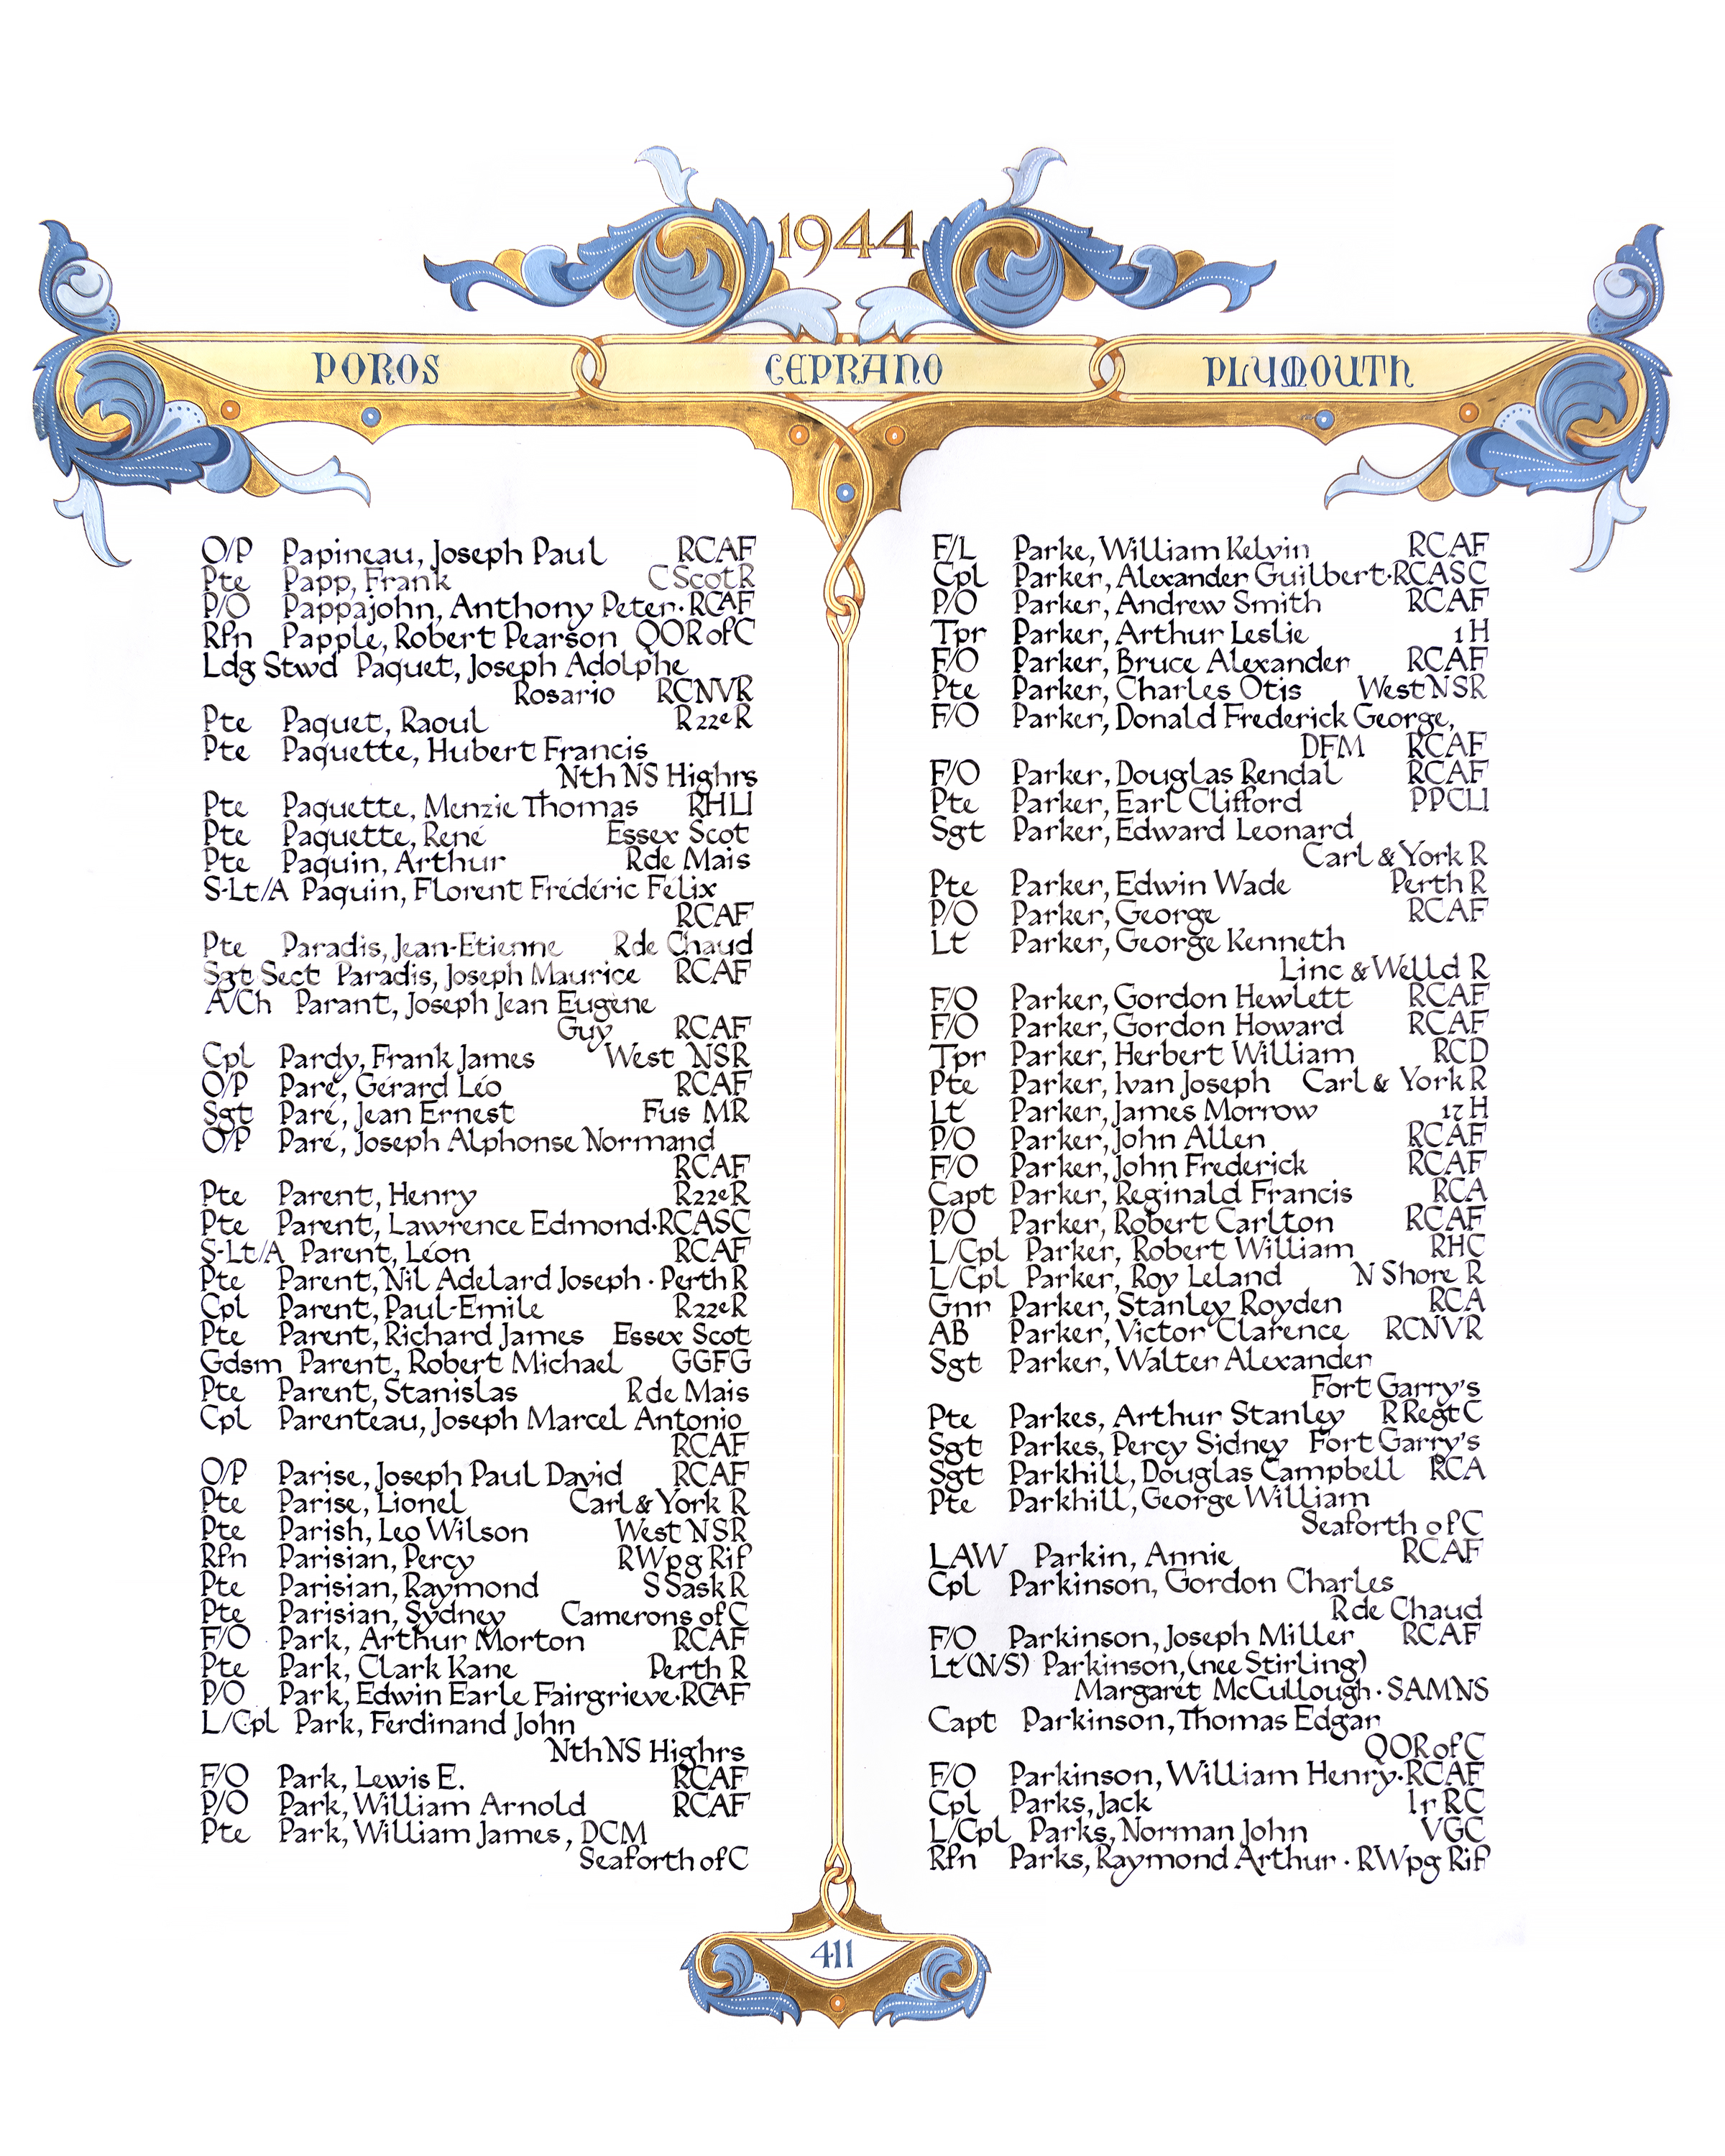 1944
POROS CEPRANO PLYMOUTH
O/P Papineau, Joseph Paul RCAF
Pte Papp, Frank C Scot R
P/O Pappajohn, Anthony Peter · RCAF
Rfn Papple, Robert Pearson QOR of C
Ldg Stwd Paquet, Joseph Adolphe
Rosario RCNVR
Pte Paquet, Raoul R22eR
Pte Paquette, Hubert Francis
Nth NS Highrs
Pte Paquette, Menzie Thomas RHLI
Pte Paquette, René Essex Scot
Pte Paquin, Arthur R de Mais
S-Lt/A Paquin, Florent Frédéric Félix
RCAF
Pte Paradis, Jean-Etienne R de Chaud
Sgt Sect Paradis, Joseph Maurice RCAF
A/Ch Parant, Joseph Jean Eugène
Guy RCAF
Cpl Pardy, Frank James West NSR
O/P Paré, Gérard Léo RCAF
Sgt Paré, Jean Ernest Fus MR
O/P Paré, Joseph Alphonse Normand
RCAF
Pte Parent, Henry R22eR
Pte Parent, Lawrence Edmond · RCASC
S-Lt/A Parent, Léon RCAF
Pte Parent, Nil Adelard Joseph · Perth R
Cpl Parent, Paul-Emile R22eR
Pte Parent, Richard James Essex Scot
Gdsm Parent, Robert Michael GGFG
Pte Parent, Stanislas R de Mais
Cpl Parenteau, Joseph Marcel Antonio
RCAF
O/P Parise, Joseph Paul David RCAF
Pte Parise, Lionel Carl & York R
Pte Parish, Leo Wilson West NSR
Rfn Parisian, Percy R Wpg Rif
Pte Parisian, Raymond S Sask R
Pte Parisian, Sydney Camerons of C
F/O Park, Arthur Morton RCAF
Pte Park, Clark Kane Perth R
P/O Park, Edwin Earle Fairgrieve · RCAF
L/Cpl Park, Ferdinand John
Nth NS Highrs
F/O Park, Lewis E. RCAF
P/O Park, William Arnold RCAF
Pte Park, William James, DCM
Seaforth of C
F/L Parke, William Kelvin RCAF
Cpl Parker, Alexander Guilbert · RCASC
P/O Parker, Andrew Smith RCAF
Tpr Parker, Arthur Leslie 1 H
F/O Parker, Bruce Alexander RCAF
Pte Parker, Charles Otis West NSR
F/O Parker, Donald Frederick George,
DFM RCAF
F/O Parker, Douglas Rendal RCAF
Pte Parker, Earl Clifford PPCLI
Sgt Parker, Edward Leonard
Carl & York R
Pte Parker, Edwin Wade Perth R
P/O Parker, George RCAF
Lt Parker, George Kenneth
Linc & Welld R
F/O Parker, Gordon Hewlett RCAF
F/O Parker, Gordon Howard RCAF
Tpr Parker, Herbert William RCD
Pte Parker, Ivan Joseph Carl & York R
Lt Parker, James Morrow 17 H
P/O Parker, John Allen RCAF
F/O Parker, John Frederick RCAF
Capt Parker, Reginald Francis RCA
P/O Parker, Robert Carlton RCAF
L/Cpl Parker, Robert William RHC
L/Cpl Parker, Roy Leland N Shore R
Gnr Parker, Stanley Royden RCA
AB Parker, Victor Clarence RCNVR
Sgt Parker, Walter Alexander
Fort Garry's
Pte Parkes, Arthur Stanley R Regt C
Sgt Parkes, Percy Sidney Fort Garry's
Sgt Parkhill, Douglas Campbell RCA
Pte Parkhill, George William
Seaforth of C
LAW Parkin, Annie RCAF
Cpl Parkinson, Gordon Charles
R de Chaud
F/O Parkinson, Joseph Miller RCAF
Lt (N/S) Parkinson, (nee Stirling)
Margaret McCullough · SAMNS
Capt Parkinson, Thomas Edgar
QOR of C
F/O Parkinson, William Henry · RCAF
Cpl Parks, Jack Ir RC
L/Cpl Parks, Norman John VGC
Rfn Parks, Raymond Arthur · R Wpg Rif
411